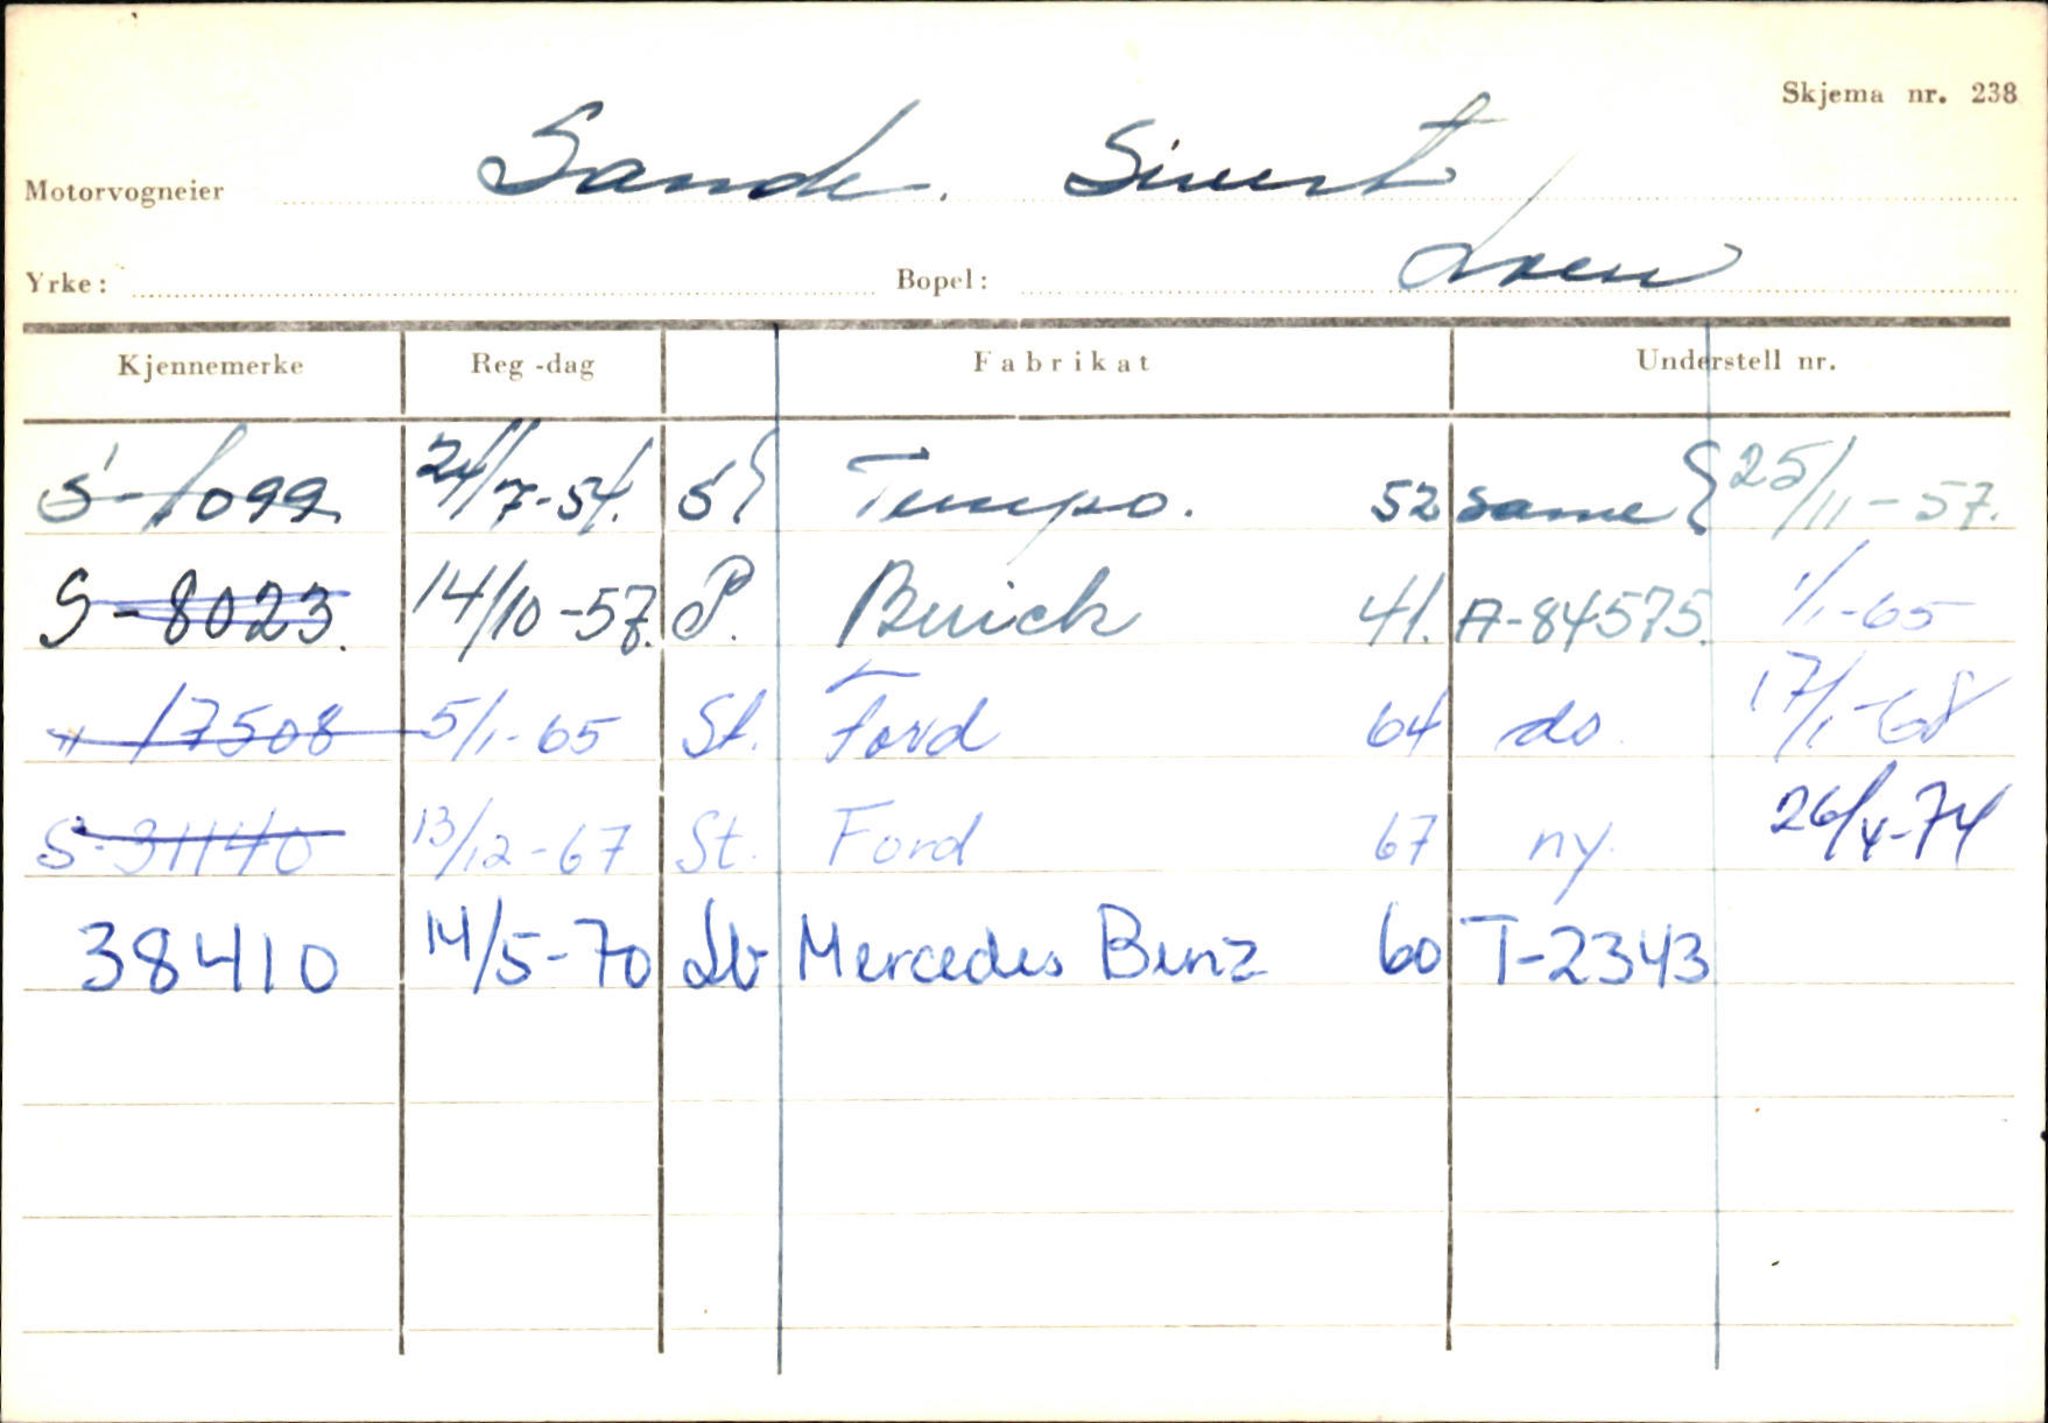 Skjema nr. 238
Motorvogneier Sande. Sivert
Yrke: Bopel: Loen
Kjennemerke Reg -dag Fabrikat Understell nr.
S-1099 24/7-54. Tempo. 52 samme { 25/11-57.
S-8023. 14/10-57. P. Buick 41. A-84575. 1/1-65
" 17508 5/1-65 St. Ford 64 do 17/1-68
S-31140 13/12-67 St. Ford 67 ny. 26/4-74
38410 14/5-70 Lb Mercedes Benz 60 T-2343